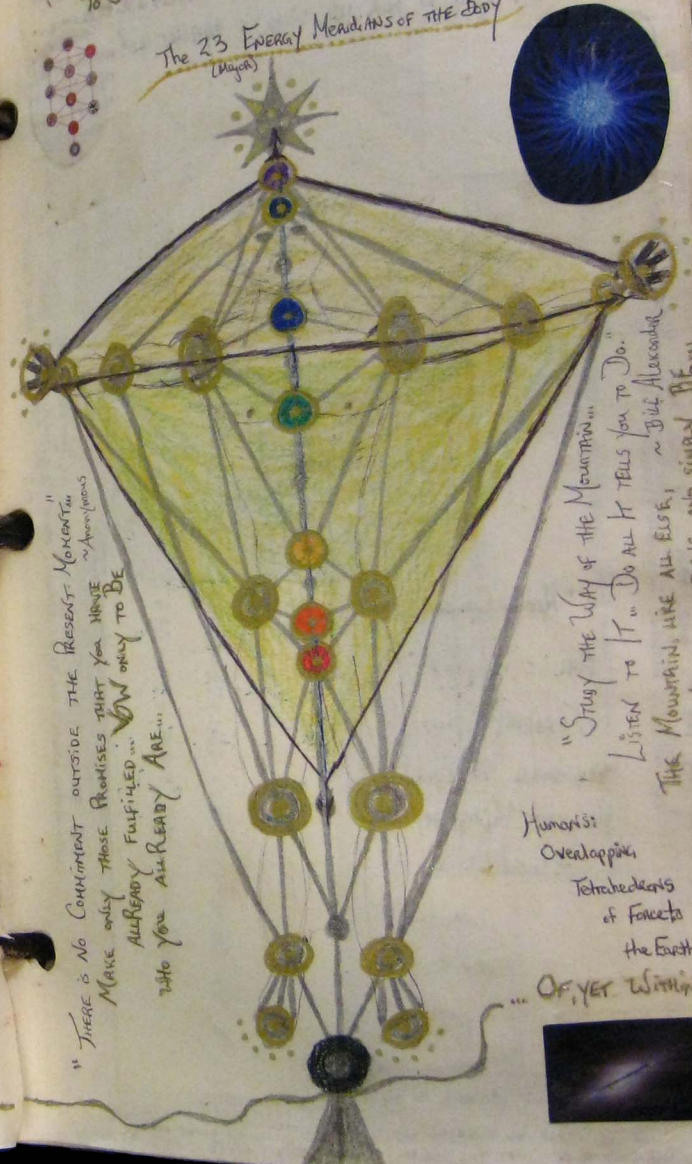 To
The 23 Energy Meridians of the Body
(Major)
"There is No Commitment outside the Present Moment..."
~Anonymous
Make only those Promises that you have
allReady Fulfilled... Vow only to Be
who you allReady Are...
"Study the Way of the Mountain...
Listen to It... Do all It tells you to Do."
~ Bill Alexander
The Mountain, like all else,
simply Be
Humans:
Overlapping
Tetrahedrons
of Force to
the Earth
... Of, yet within